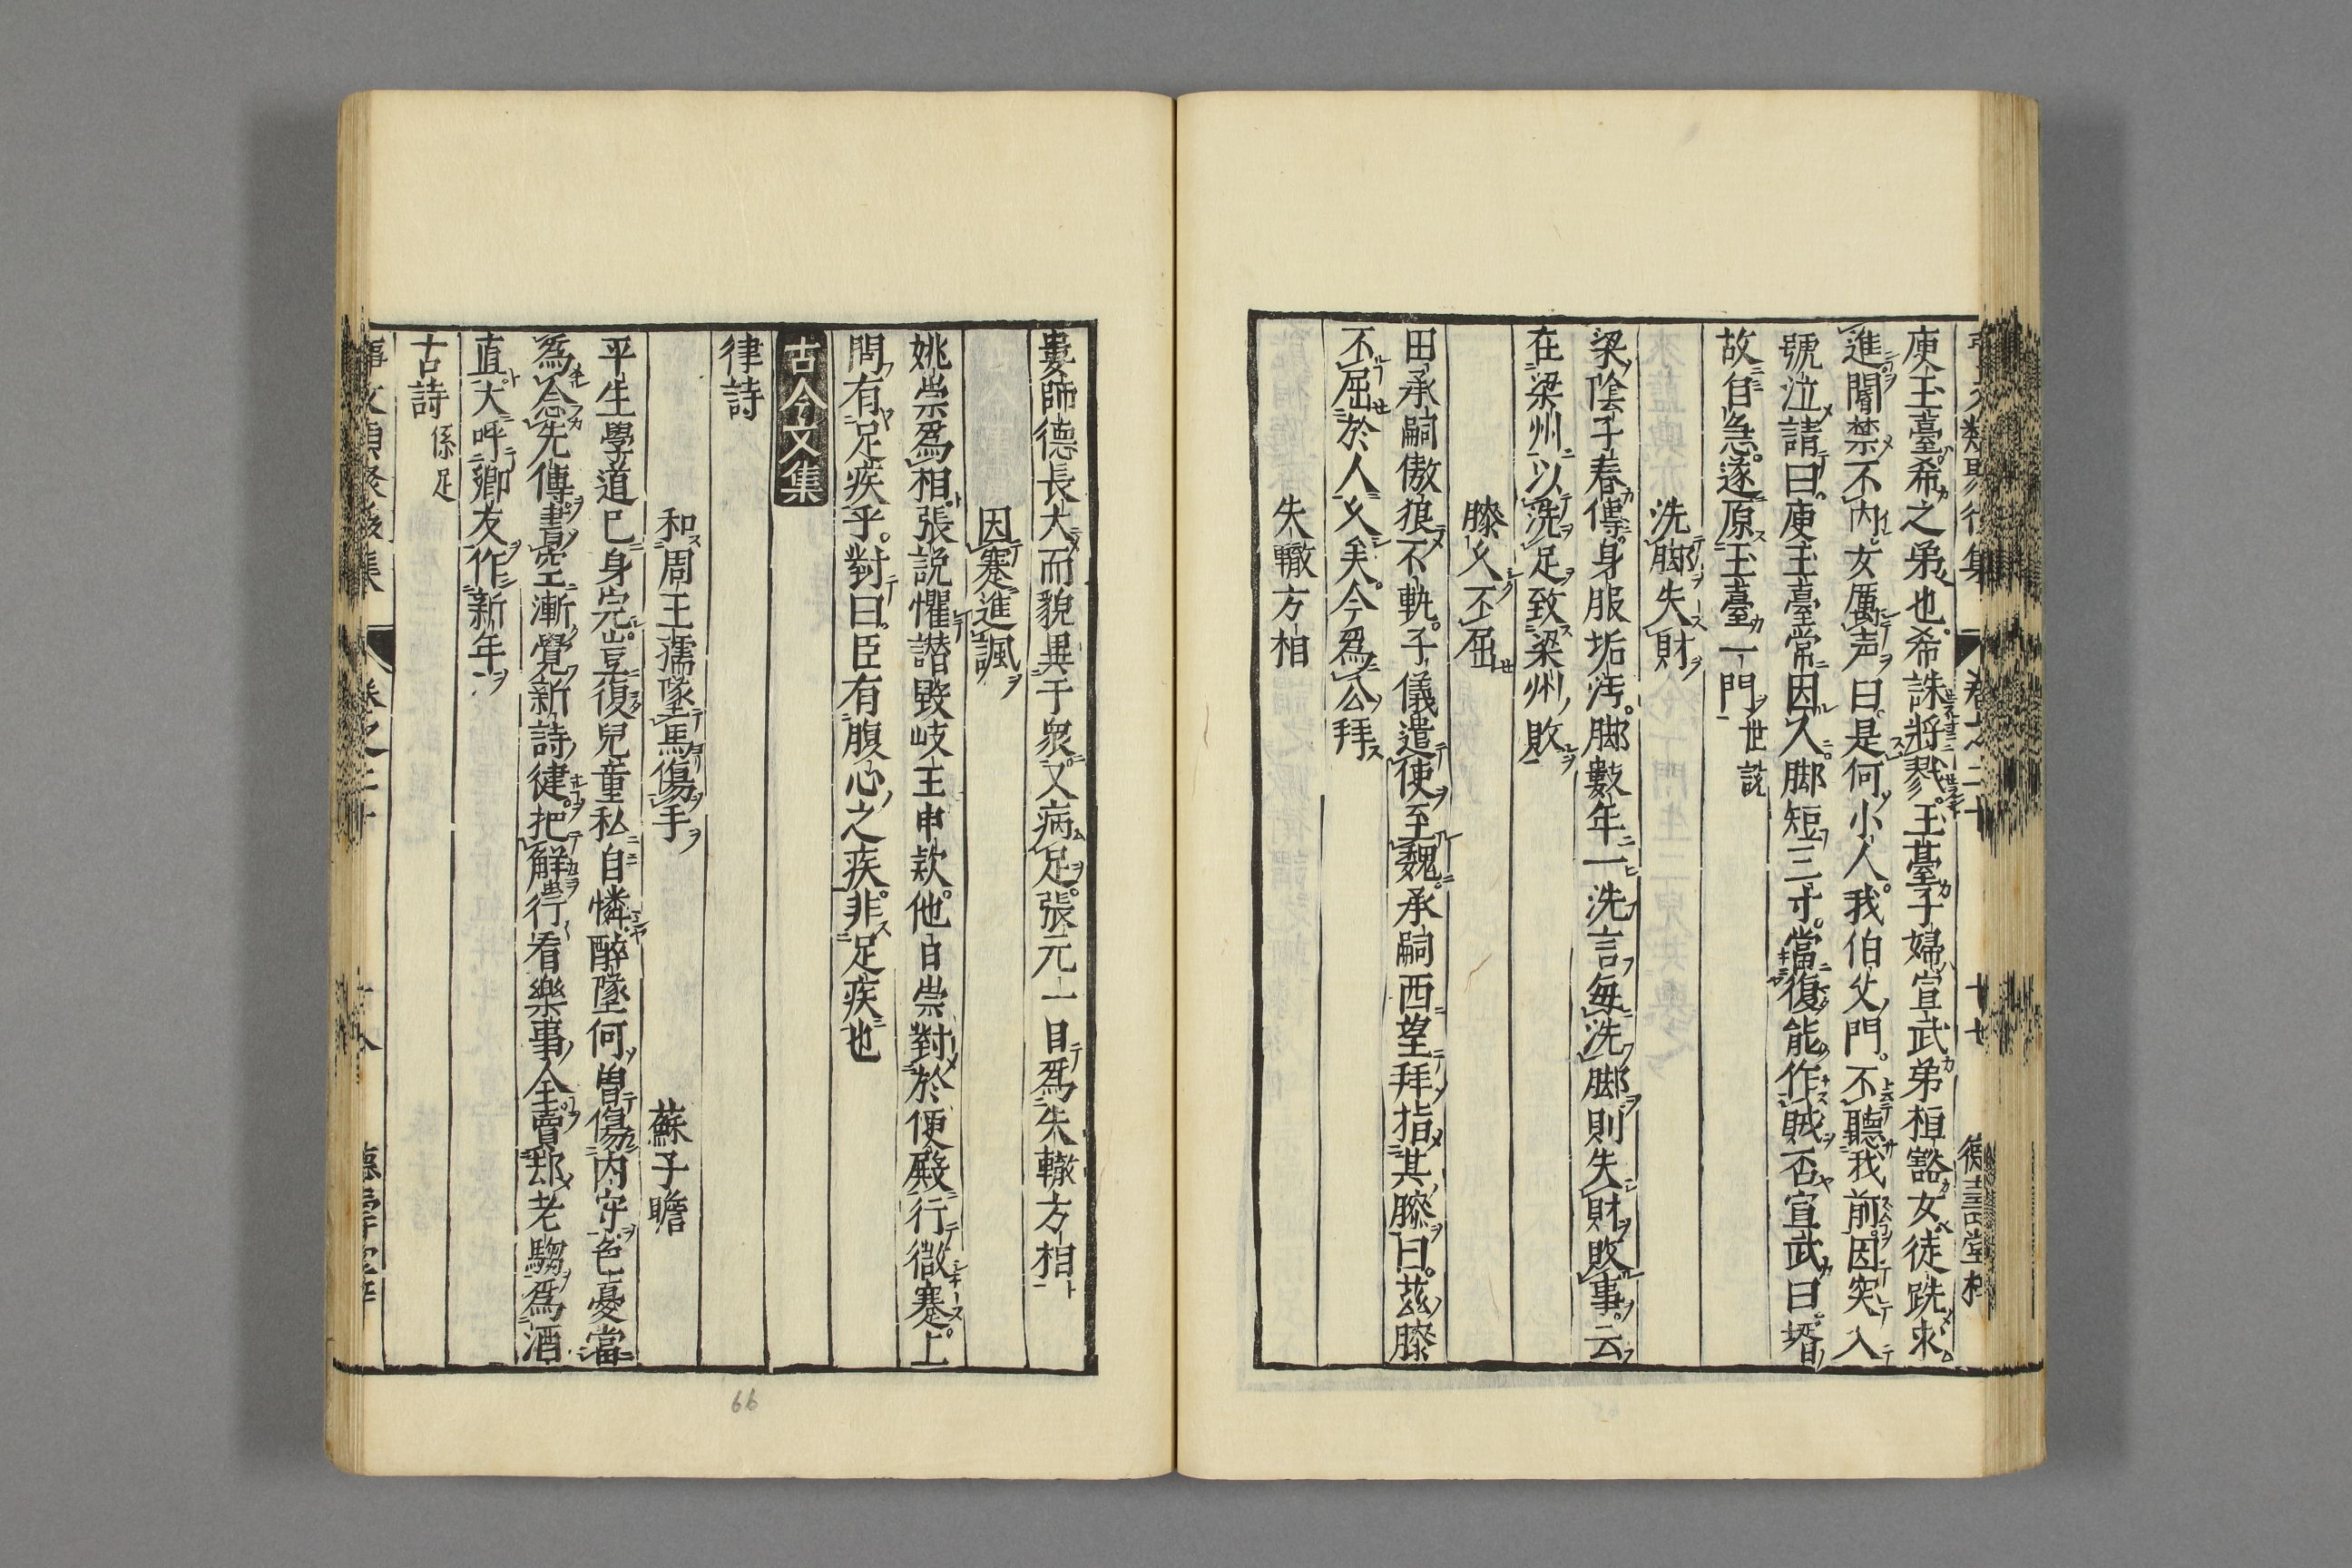 庾玉臺希之弟也希誅將戮玉臺子婦宣武弟桓豁女徒跣求
進閽禁不內女厲声曰是何小人我伯父門不聽我前因突入
號泣請曰庾玉臺常因人脚短三寸當復能作賊否宣武曰壻
故自急遂原玉臺一門世説
洗脚失財
梁陰子春傳身服垢汚脚數年一洗言毎洗脚則失財敗事云
在梁州以洗足致梁州敗
膝久不屈
田承嗣傲狼不軌子儀遣使至魏承嗣西望拜指其膝曰茲膝
不屈於人久矣今爲公拜
失轍方相
婁師德長大而貌異于衆又病足張元一目爲失轍方相
因蹇進諷
姚崇爲相張説懼譖毀岐王申款他日崇對於便殿行微蹇上
問有足疾乎對曰臣有腹心之疾非足疾也
古今文集
律詩
和周王孺墜馬傷手
蘇子瞻
平生學道已身完豈復兒童私自憐醉墜何曽傷内守色憂當
爲念先傳書空漸覺新詩健把觧行看樂事全賣却老騶爲酒
直大呼卿友作新年
古詩係足
事文類聚後集 卷之二十 十八